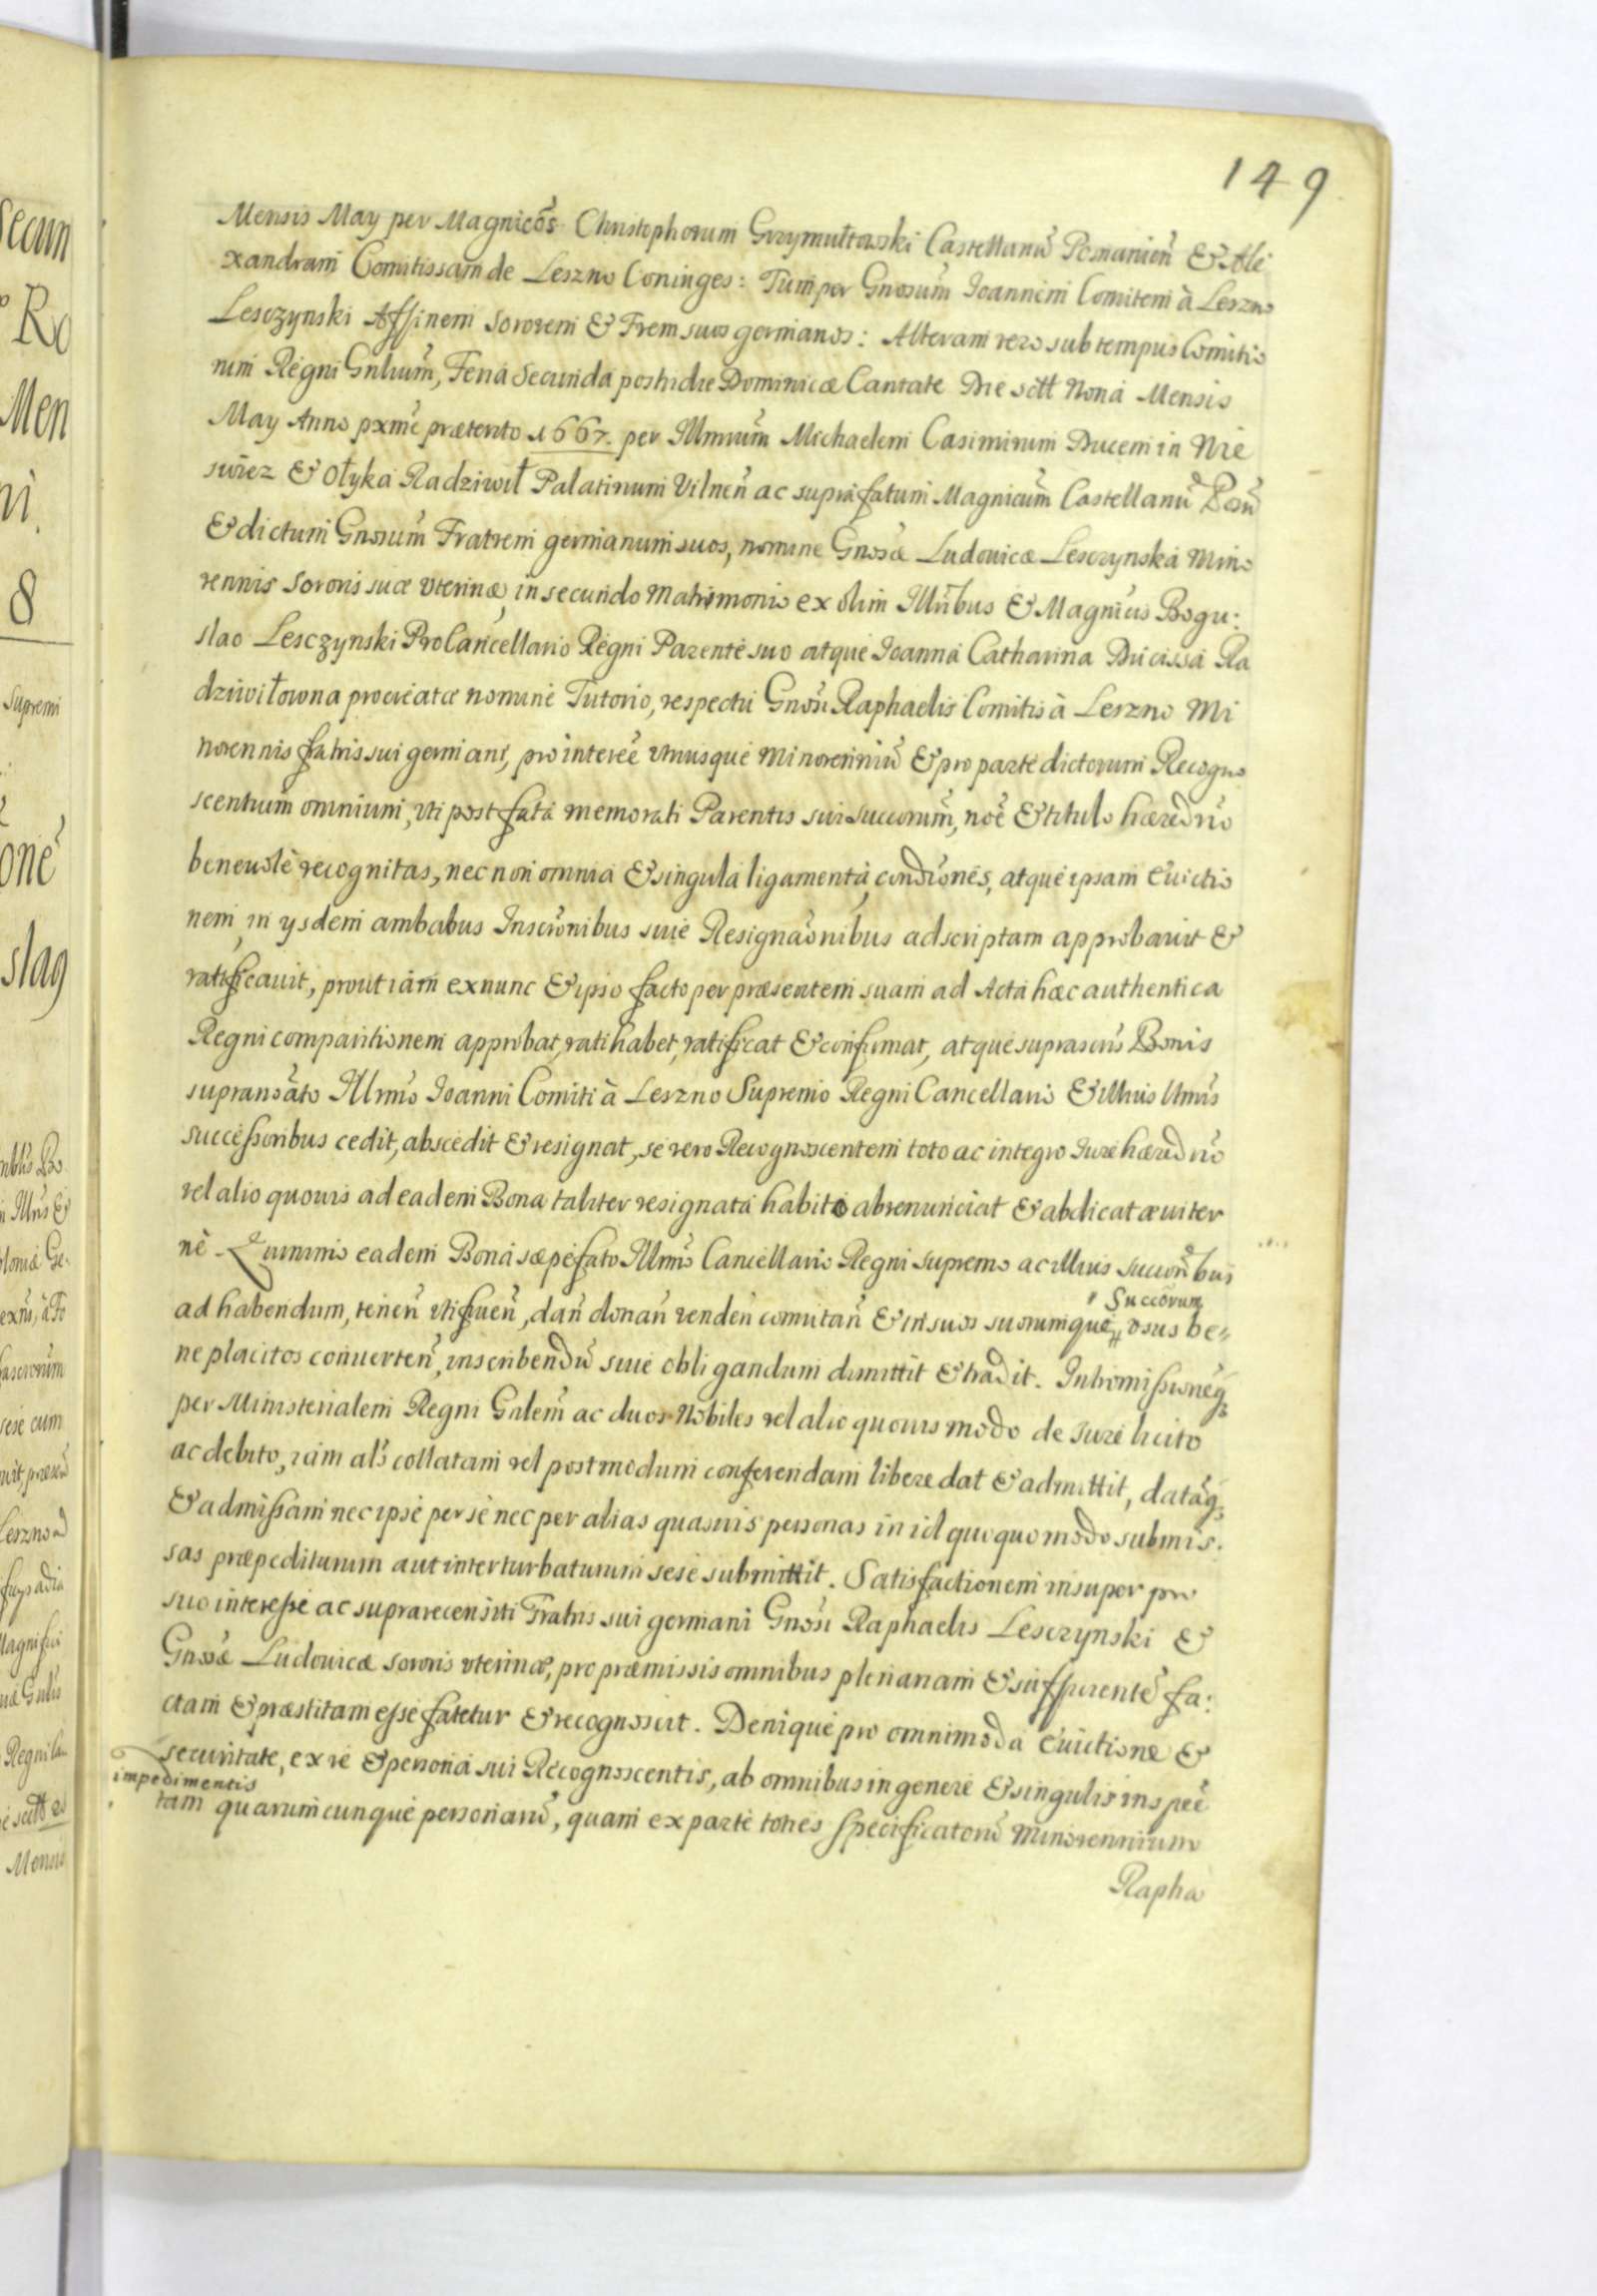 149
Mensis May per Magnicos Christophorum Grzymułtowski Castellanu Posnanien & Ale
xandram Comitissam de Leszno Coniuges: Tum per Gnosum Ioannem Comitem à Leszno
Lesczynski Affinem Sororem & Frem suos germanos: Alteram vero sub tempus Comitio
rum Regni Gnlium, Feria Secunda postridie Dominicæ Cantate Die sctt Nona Mensis
May Anno pxme præterito 1667. per Illmum Michaelem Casimirum Ducem in Nie
swiez & Ołyka Radziwił Palatinum Vilnen ac suprafatum Magnicum Castellanu Posn
& dictum Gnosum Fratrem germanum suos, nomine Gnosæ Ludouicæ Lesczynska Mino
rennis Sororis suæ Vterinæ, in secundo Matrimonio ex olim Illribus & Magnicis Bogu:
slao Lesczynski ProCancellario Regni Parente suo atque Ioanna Catharina Ducissa Ra
dziwiłowna procreatæ nomine Tutorio, respectu Gnosi Raphaelis Comitis à Leszno Mi
norennis fratris sui germani, pro interee vtriusque Minorenniu & pro parte dictorum Recogno
scentium omnium, vti post fata memorati Parentis sui succorum, noe & titulo hæredrio
beneuole recognitas, nec non omnia & singula ligamenta, condiones, atque ipsam Euictio
nem in ysdem ambabus Inscronibus siue Resignaonibus adscriptam approbauit &
ratificauit, prout iam exnunc & ipso facto per præsentem suam ad Acta hæc authentica
Regni comparitionem approbat, ratihabet, ratificat & confirmat, atque suprascris Bonis
supranoato Illmo Ioanni Comiti à Leszno Supremo Regni Cancellario & illius Vmis
successoribus cedit, abscedit & resignat, se vero Recognoscentem toto ac integro Iure hæredrio
vel alio quouis ad eadem Bona taliter resignata habito abrenunciat & abdicat æuiter
nè. Quinimo eadem Bona sæpefato Illmo Cancellario Regni supremo ac illius succoribus
ad habendum, tenen vtifruen, dan donan venden comutan & in suos suorumque " Succorum vsus be"
ne placitos conuerten, inscribendu siue obligandum dimittit & tradit. Intromissioneq
per Ministerialem Regni Gnlem ac duos Nobiles vel alio quouis modo de Iure licito
ac debito, iam als collatam vel postmodum conferendam libere dat & admittit, dataq
& admissam nec ipse per se nec per alias quasuis personas in id quoquo modo submis:
sas præpediturum aut interturbaturum sese submittit. Satisfactionem insuper pro
suo interesse ac suprarecensiti Fratris sui germani Gnosi Raphaelis Lesczynski &
Gnosæ Ludouicæ sororis vterinæ, pro præmissis omnibus plenariam & sufficiente fa:
ctam & præstitam esse fatetur & recognoscit. Denique pro omnimoda Euictione &
securitate, ex re & persona sui Recognoscentis, ab omnibus in genere & singulis in spee
impedimentis
tam quarumcunque personaru, quam ex parte toties specificatoru Minorennium
Rapha